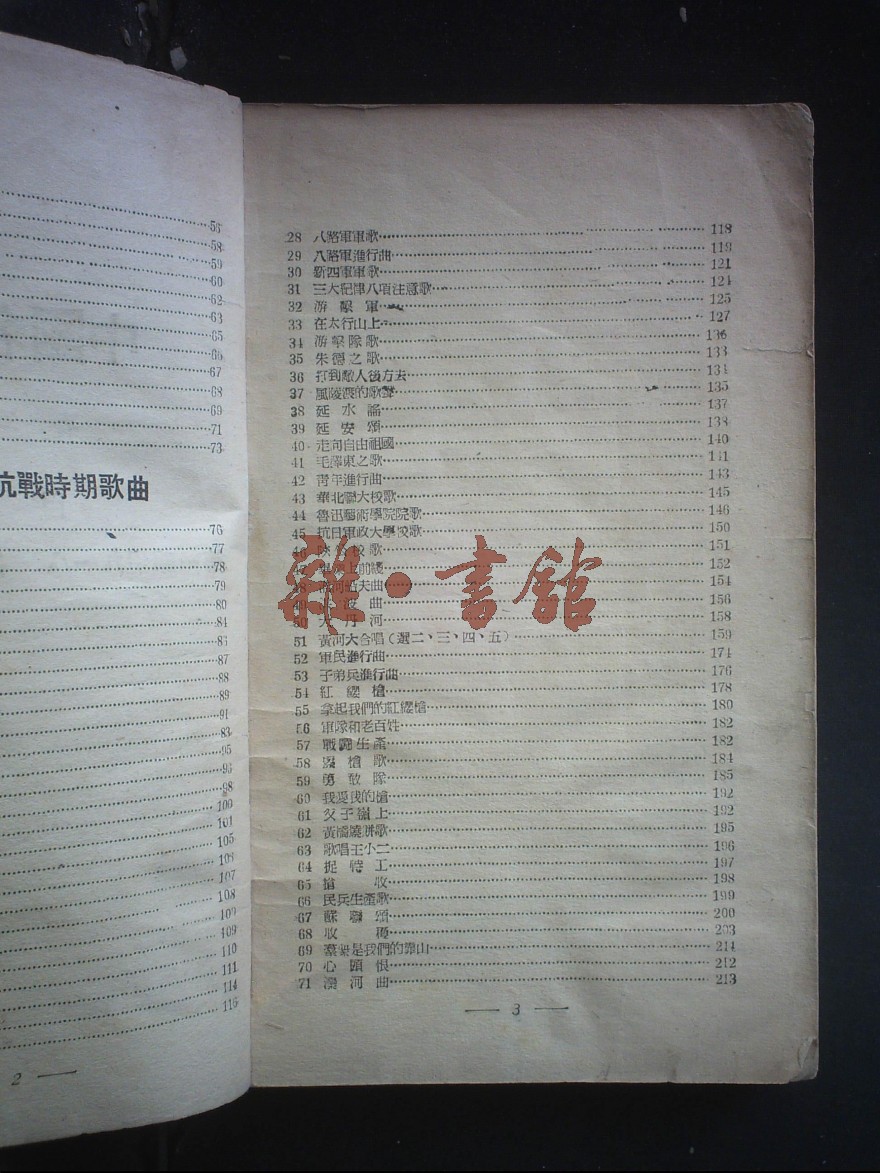 56
58
59
60
62
63
65
66
67
68
69
71
73
抗戰時期歌曲
76
77
78
79
80
84
87
88
89
91
95
98
100
101
105
107
108
109
109
110
111
114
2
28 八路軍軍歌 118
29 八路軍進行曲 119
30 新四軍軍歌 121
31 三大紀律八項注意歌 124
32 游擊軍 125
33 在太行山上 127
34 游擊隊歌
35 朱德之歌 133
36 打到敵人後方去 134
37 風陵渡的歌聲 135
38 延水謠 137
39 延安頌 138
40 走向自由祖國 140
41 毛澤東之歌 141
42 靑年進行曲 143
43 華北聯大校歌 145
44 魯迅藝術學院院歌 146
45 抗日軍政大學校歌 150
46 校歌 151
上前綫 152
夫曲 154
49 曲 156
50 丹河 158
51 黃河大合唱(選二、三、四、五) 159
52 軍民進行曲 174
53 子弟兵進行曲 176
54 紅纓槍 178
55 拿起我們的紅纓槍 180
56 軍隊和老百姓 182
57 戰鬪生產 182
58 槍歌 184
59 勇敢隊 185
60 我愛我的槍 192
61 父子嶺上 192
62 黃橋燒餅歌 195
63 歌唱王小二 196
64 捉特工 197
65 搶收 198
66 民兵生產歌 199
67 蘇聯頌 200
68 收穫 203
69 羣衆是我們的靠山 211
70 心頭恨 212
71 滹河曲 213
3
雜·書館